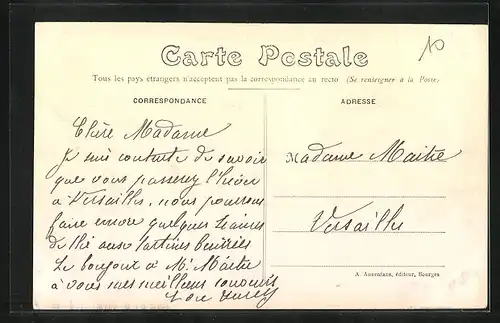 Carte Postale
Tous les pays étrangers n'acceptent pas la correspondance au recto (Se renseigner à la Poste)
CORRESPONDANCE
Chère Madame
Je suis contente de savoir
que vous passerez l'hiver
à Versailles, nous pourrons
faire encore quelques
de thé aux tartines beurrées
Le bonjour à Mr Maitre
à vous mes meilleurs souvenirs
ADRESSE
Madame Maitre
Versailles
A. Auxenfans, éditeur, Bourges